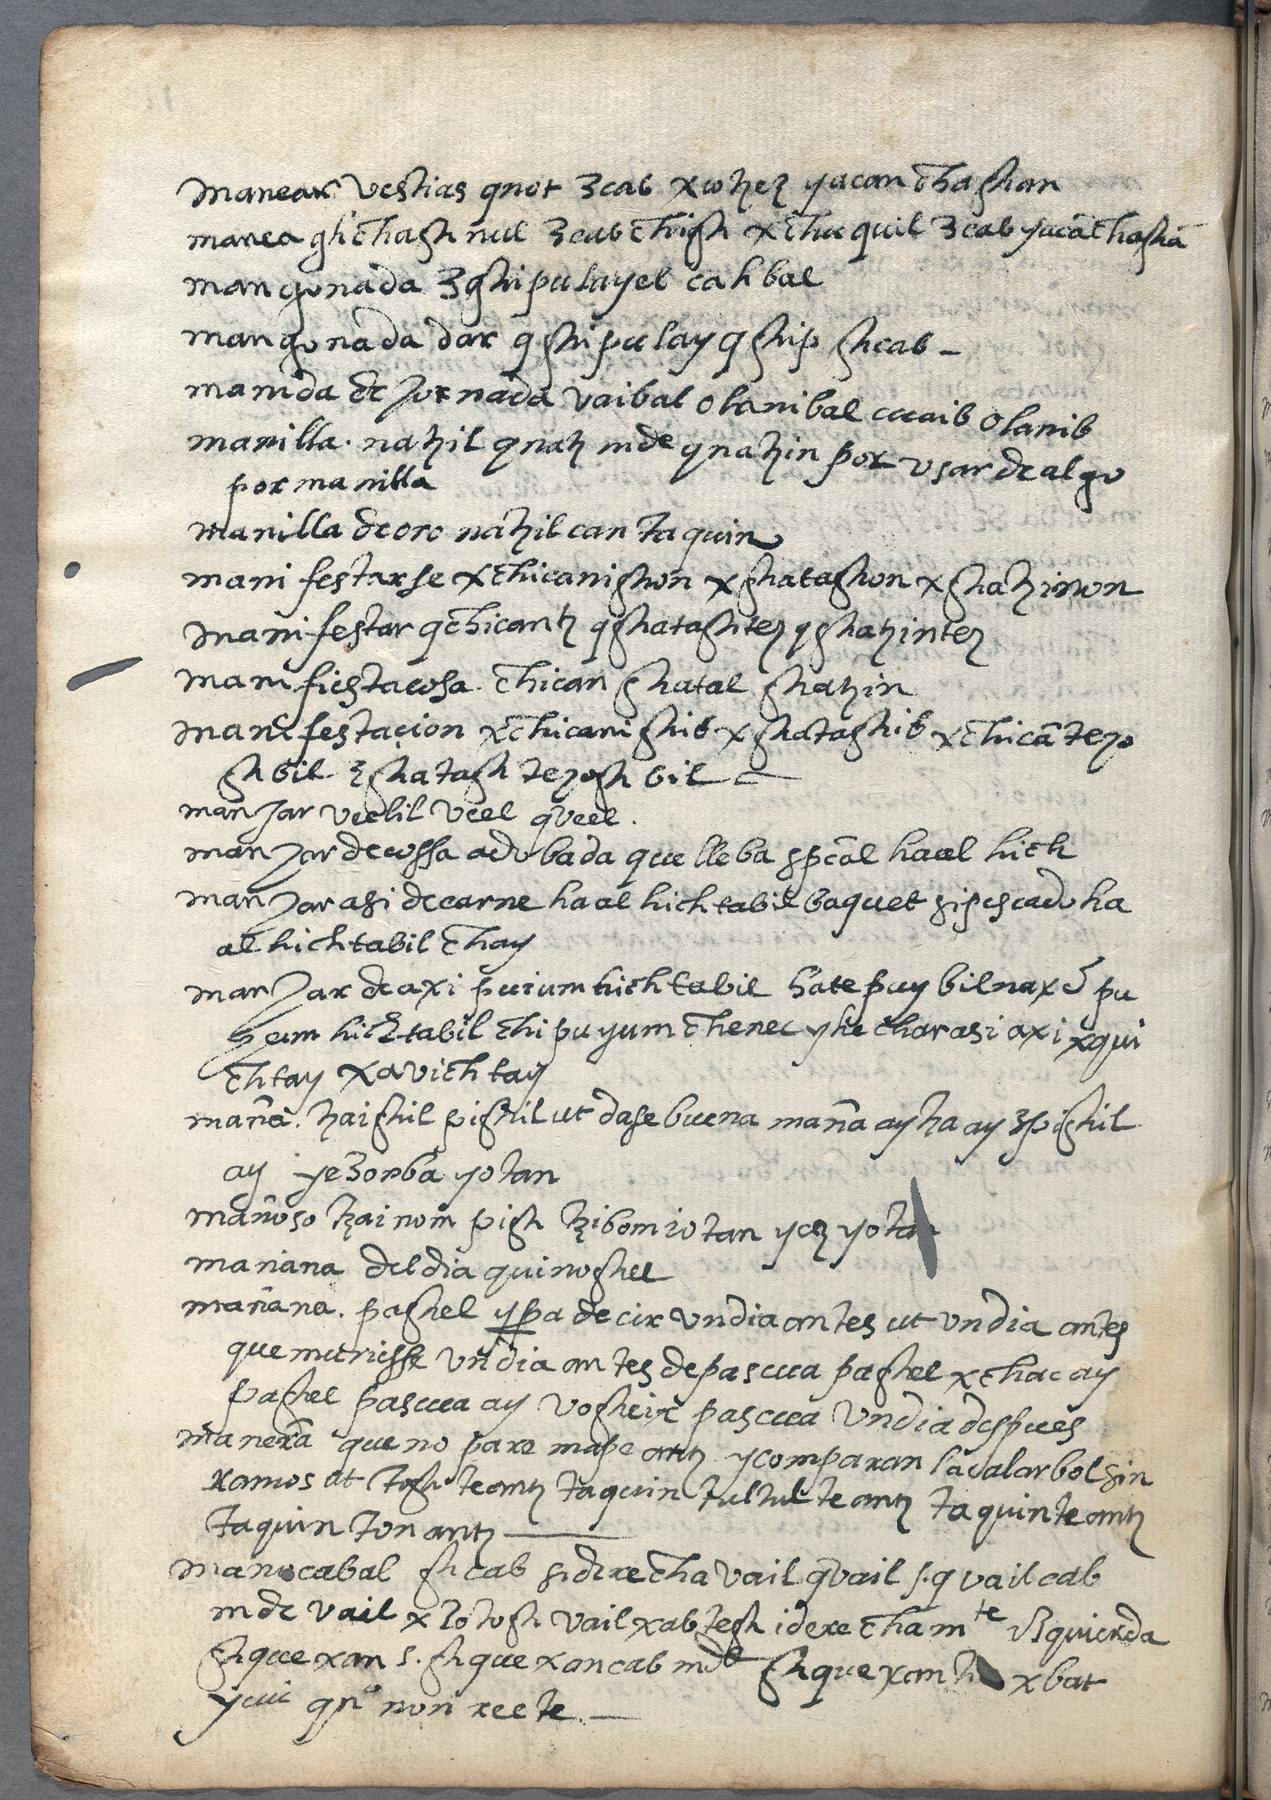 manear vestias qnot 3cab xcotzez yacan chaghan
manea gh chagh nul 3cab chigh xchucquil 3cab yacā chaghā
mangonada 3ghipulayel cahbal
mangonada dar qghipulay qghip ghcab –
manida de jornada vaibal olanibal cuaib olanib
manilla . natzil qnatz mde qnatzin por usar de algo
por manilla
manilla de oro natzil can taquin
manifestarse xchicanighon xghataghon xghatzinon
manifestar qchicantz qghataghtez qghatzintez
manifiesta cosa . chican ghatal ghatzin
manifestacion xchicanighib xghataghib xchicātezo
ghbil 3ghatagh tezoghbil –
manjar veelil veel qveel .
manjar de cossa adobada que lleba spēal haal hich
manjar asi de carne haal hichtabil baquet si pescado ha
al hichtabil chay
manjar de axi puium hichtabil hate puy bil
hichtabil chi puyum chenec y he char asi axi xqui
chtay xavichtay
maña . tzaighil pighil ut dase buena maña ay tza ay 3pighil
ay ye3onba yotan
mañoso tzainom pigh tzibom iotan yez yotan
mañana del dia quinoghel
mañana . paghel ypa decir un dia antes ut un dia antes
que muriesse un dia antes de pascua paghel xchac ay
paghel pascua ay vogheix pascua un dia despues
manera que no pare mape antz y comparan la al arbol sin
ramos ut togh te antz taquin tultul te antz taquin te antz
taquin ton antz –
mano cabal ghcab si derecha vail qvail s. q vail cab
mde vail x lotogh vail xabtegh i derecham te isquierda
ghquexan s. ghquexan cab mde ghquexan xbat
qn non recte . –